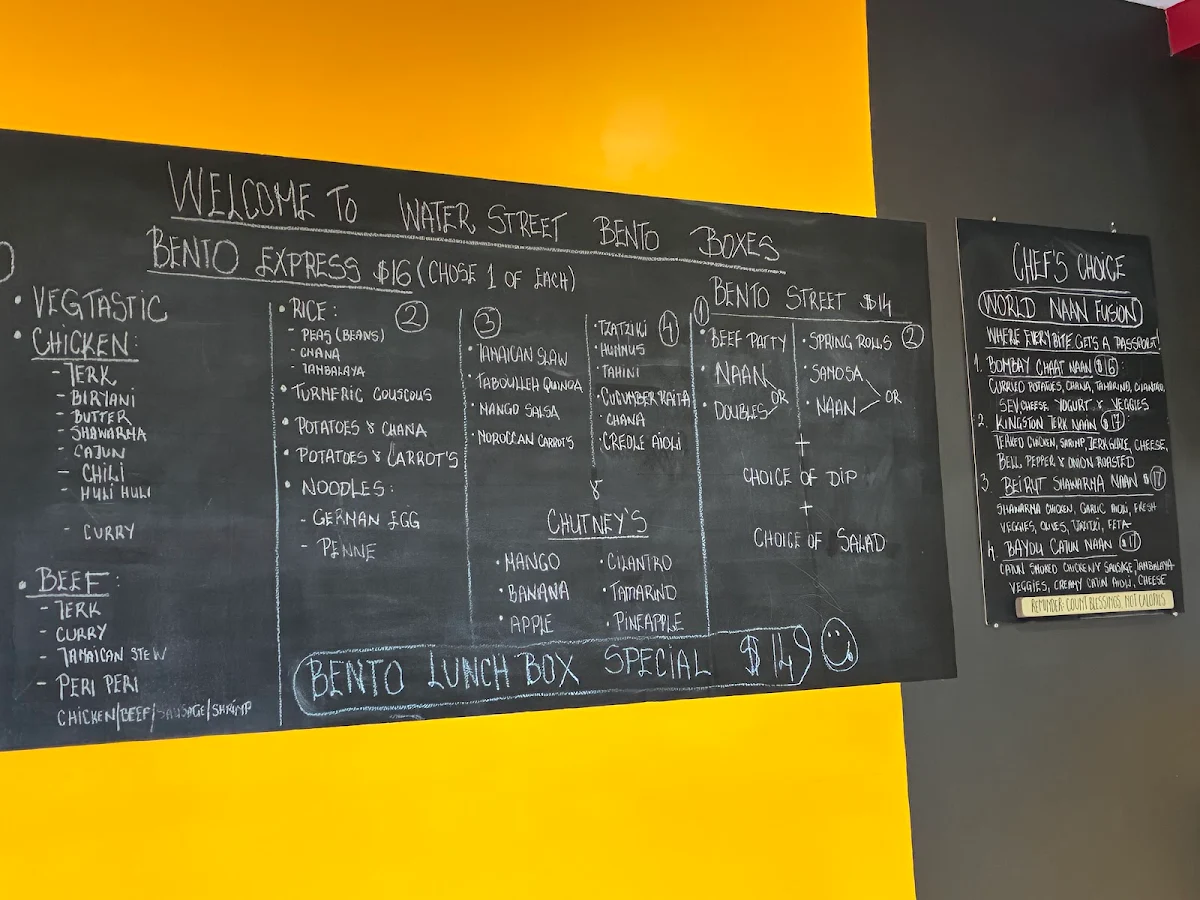 WELCOME TO WATER STREET BENTO BOXES
BENTO EXPRESS $16 (CHOSE 1 OF EACH)
• VEGTASTIC
• CHICKEN:
- JERK
- BIRYANI
- BUTTER
- SHAWARMA
- CAJUN
- CHILI
- HULI HULI
- CURRY
• BEEF:
- JERK
- CURRY
- JAMAICAN STEW
- PERI PERI
CHICKEN/BEEF/SAUSAGE/SHRIMP
• RICE: 2
- PEAS (BEANS)
- CHANA
- JAMBALAYA
• TURMERIC COUSCOUS
• POTATOES & CHANA
• POTATOES & CARROT'S
• NOODLES:
- GERMAN EGG
- PENNE
3
• JAMAICAN SLAW
• TABOULLEH QUINOA
• MANGO SALSA
• MOROCCAN CARROT'S
• TZATZIKI 4
• HUMMUS
• TAHINI
• CUCUMBER RAITA
• CHANA
• CREOLE AIOLI
&
CHUTNEY'S
• MANGO
• BANANA
• APPLE
• CILANTRO
• TAMARIND
• PINEAPPLE
BENTO STREET $14
1
• BEEF PATTY
• NAAN
OR
• DOUBLES
• SPRING ROLLS 2
• SAMOSA
OR
• NAAN
+
CHOICE OF DIP
+
CHOICE OF SALAD
BENTO LUNCH BOX SPECIAL $14
CHEF'S CHOICE
WORLD NAAN FUSION
WHERE EVERY BITE GETS A PASSPORT!
1. BOMBAY CHAAT NAAN $16:
CURRIED POTATOES, CHANA, TAMARIND, CILANTRO,
SEV CHEESE YOGURT & VEGGIES
2. KINGSTON JERK NAAN $17
CHICKEN, SHRIMP, JERK GLAZE, CHEESE,
BELL PEPPER & ONION ROASTED
3. BEIRUT SHAWARMA NAAN $17
SHAWARMA CHICKEN, GARLIC AIOLI, FRESH
VEGGIES, OLIVES, TZATZIKI, FETA
4. BAYOU CAJUN NAAN $17
CAJUN SMOKED CHICKEN & SAUSAGE JAMBALAYA
VEGGIES, CREAMY CAJUN AIOLI, CHEESE
REMINDER: COUNT BLESSINGS, NOT CALORIES